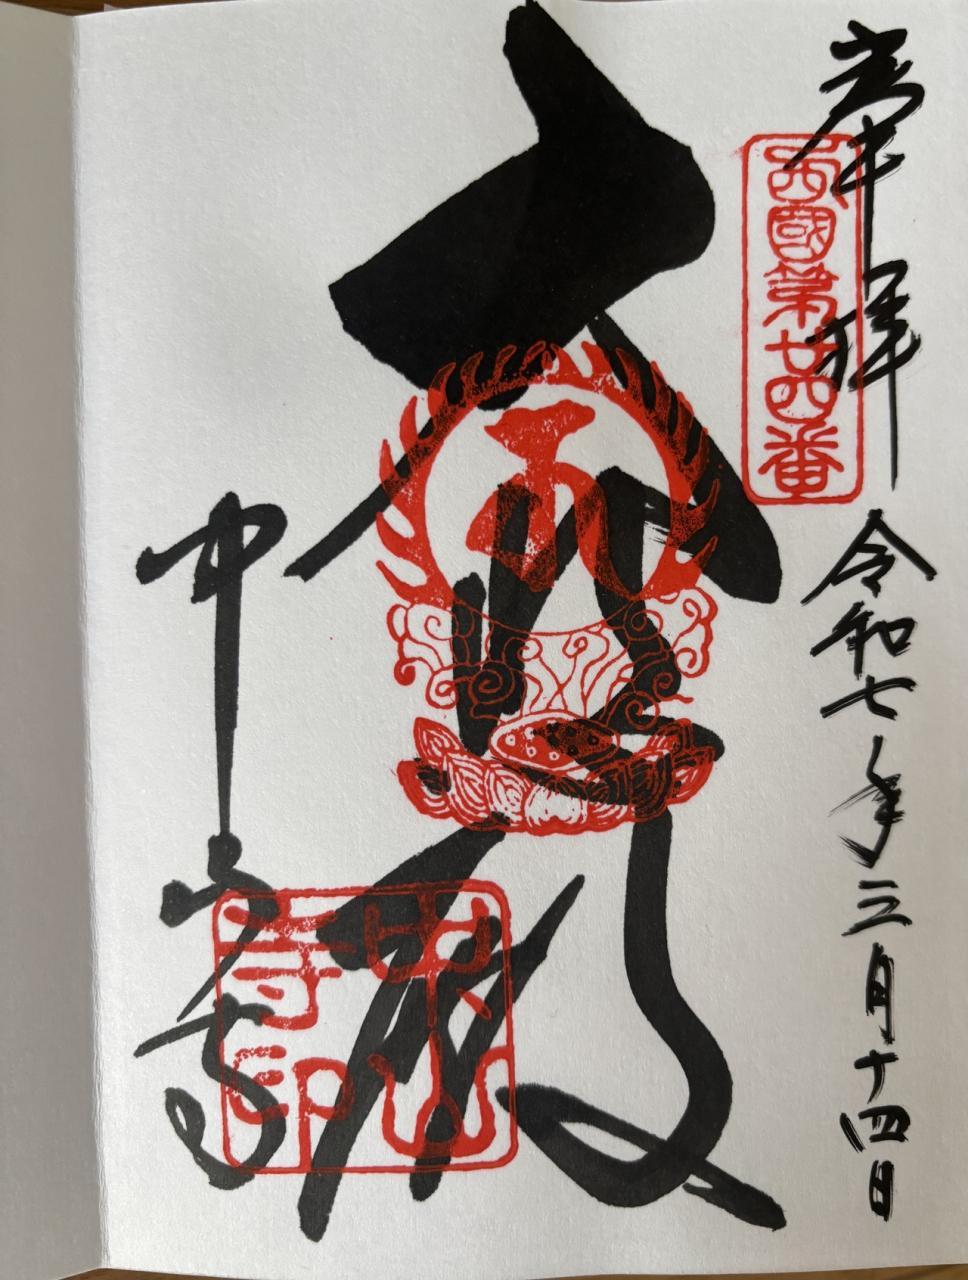 奉拝
西國第廿四番
令和七年三月十四日
大悲殿
中山寺
中山
寺印